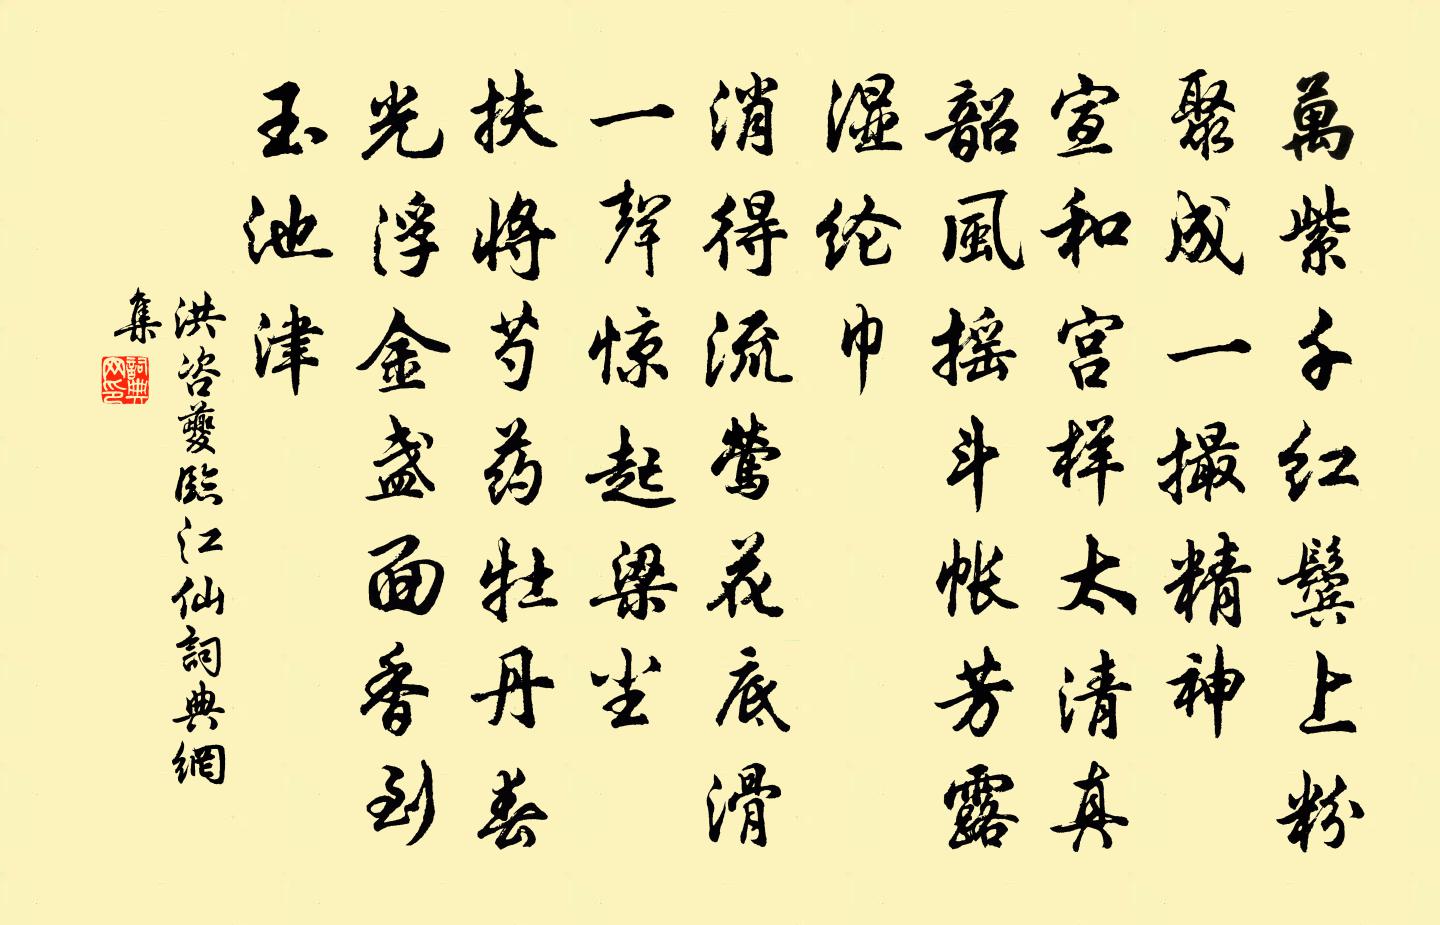 萬紫千红鬓上粉
聚成一撮精神
宣和宫样太清真
韶風摇斗帐芳露
湿纶巾
消得流莺花底滑
一聲惊起梁尘
扶将芍药牡丹春
光浮金盏面香到
玉池津
洪咨夔臨江仙詞典網
集
詞典网印